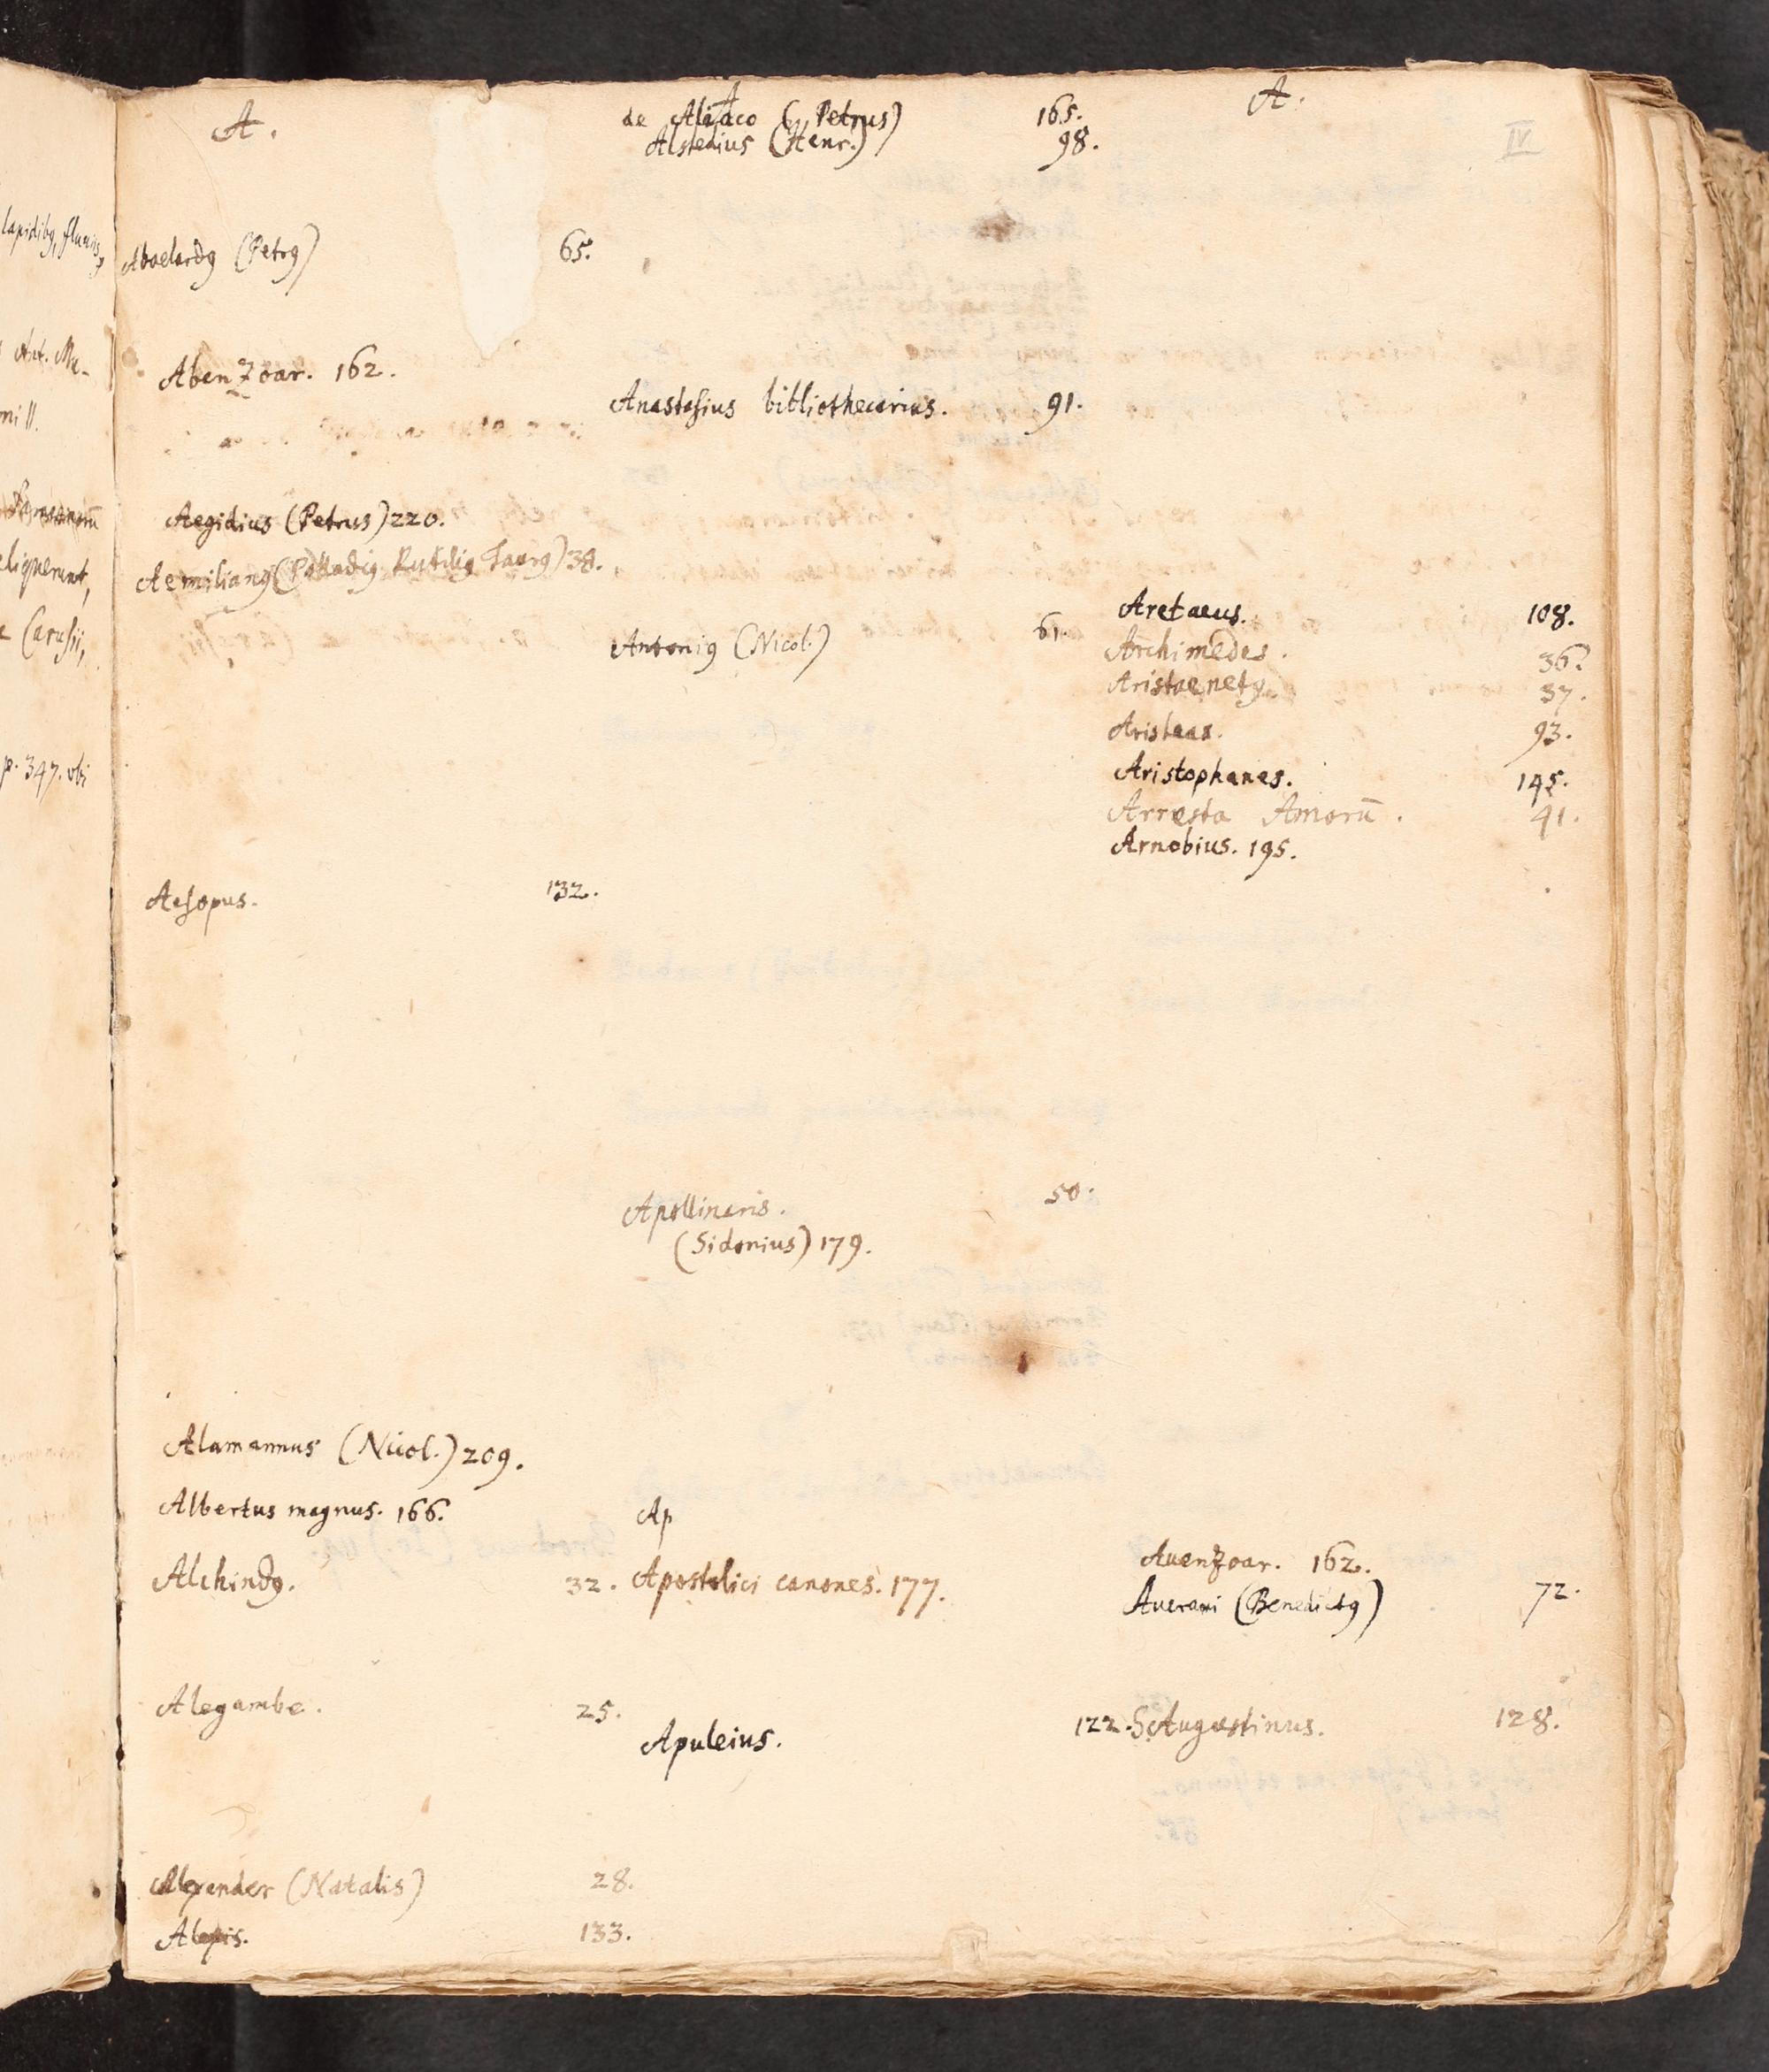 lapidibꝰ, fluviis,
Ant. Mu-
mi II.
eliquerunt,
Carusii,
p. 347. ubi
A.
Abaelardꝰ (Petrꝰ) 65.
Aben Zoar. 162.
Aegidius (Petrus) 220.
Aemilianꝰ (Palladiꝰ Rutiliꝰ Taurꝰ) 38.
Aesopus. 132.
Alamannus (Nicol.) 209.
Albertus magnus. 166.
Alchindꝰ. 32.
Alegambe. 25.
Alexander (Natalis) 28.
Alexis. 133.
A
de Aliaco (Petrus) 165.
Alstedius (Henr.) 98.
Anastasius bibliothecarius. 91.
Antoniꝰ (Nicol.) 61.
Apollinaris. 50.
(Sidonius) 179.
Ap
Apostolici canones. 177.
Apuleius. 122.
A.
IV
Aretaeus. 108.
Archimedes. 36.
Aristaenetꝰ. 37.
Aristeas. 93.
Aristophanes. 145.
Arresta Amorū. 41.
Arnobius. 195.
Avenzoar. 162.
Averani (Benedictꝰ) 72.
S. Augustinus. 128.